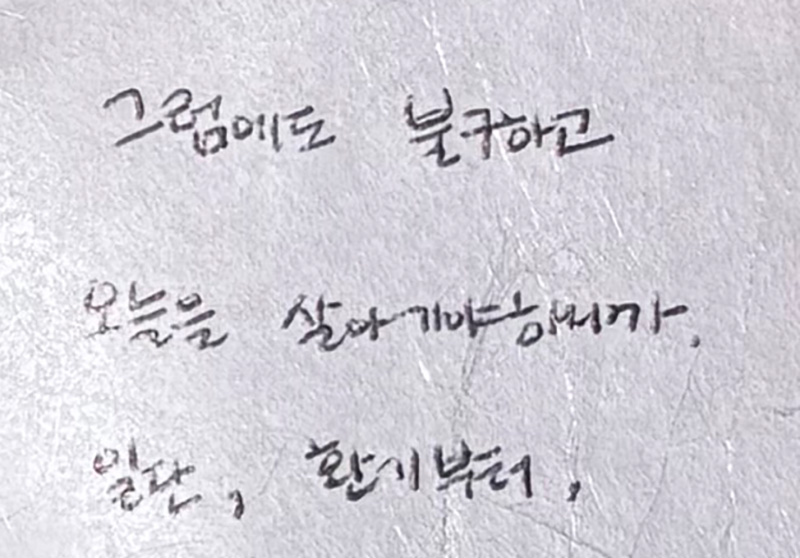 그럼에도 불구하고
오늘을 살아가야하니까.
일단, 환기부터,